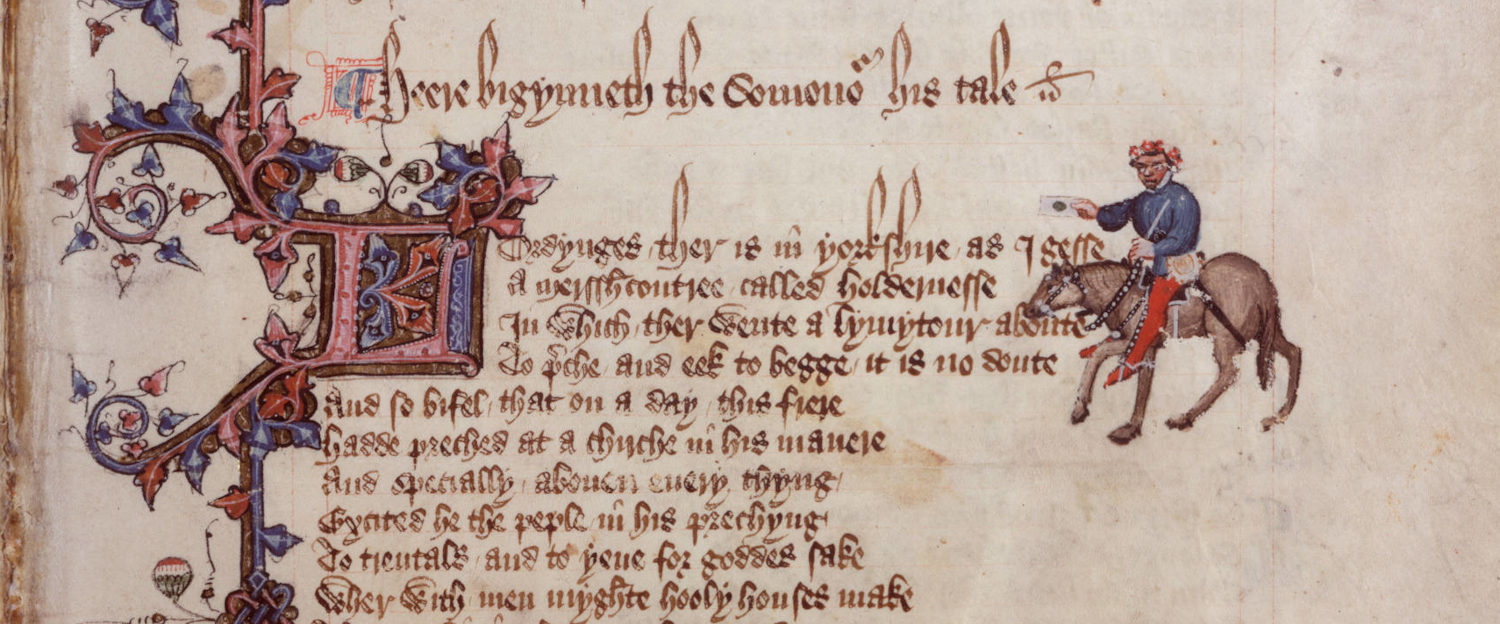 ¶ Heere bigynneth the Somonoʳ his tale
Lordynges ther is in yorkshire as I gesse
A mersshcontree called holdernesse
In which ther wente a lymytour aboute
To p̄che and eek to begge it is no doute
And so bifel that on a day this frere
hadde preched at a chirche in his manere
And specially abouen euery thyng
Excited he the peple in his prechyng
To trentals and to yeue for goddes sake
Wher with men myghte hooly houses make